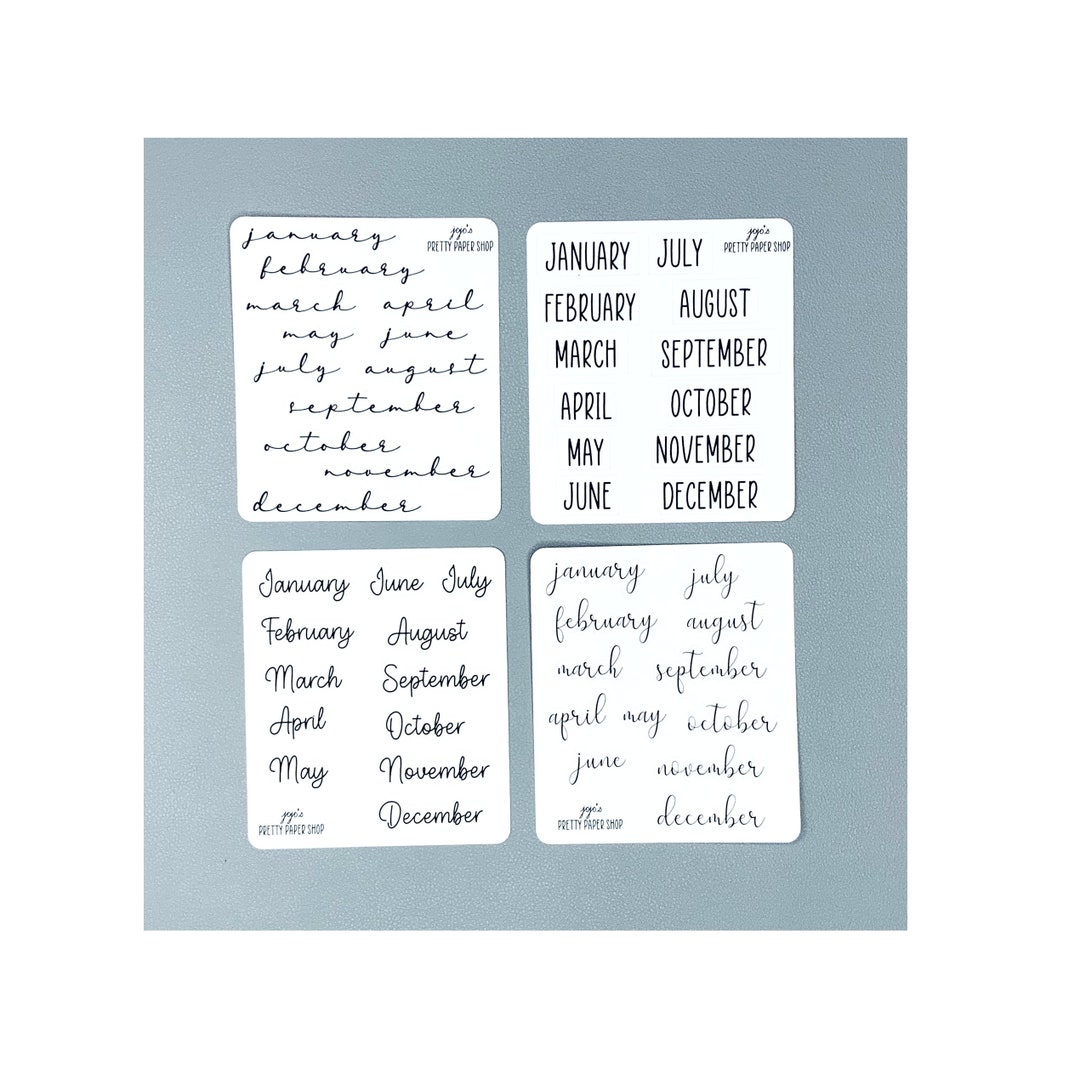 january
jojo's
PRETTY PAPER SHOP
february
march april
may june
july august
september
october
november
december
JANUARY JULY
jojo's
PRETTY PAPER SHOP
FEBRUARY AUGUST
MARCH SEPTEMBER
APRIL OCTOBER
MAY NOVEMBER
JUNE DECEMBER
January June July
February August
March September
April October
May November
December
jojo's
PRETTY PAPER SHOP
january july
february august
march september
april may october
june november
december
jojo's
PRETTY PAPER SHOP